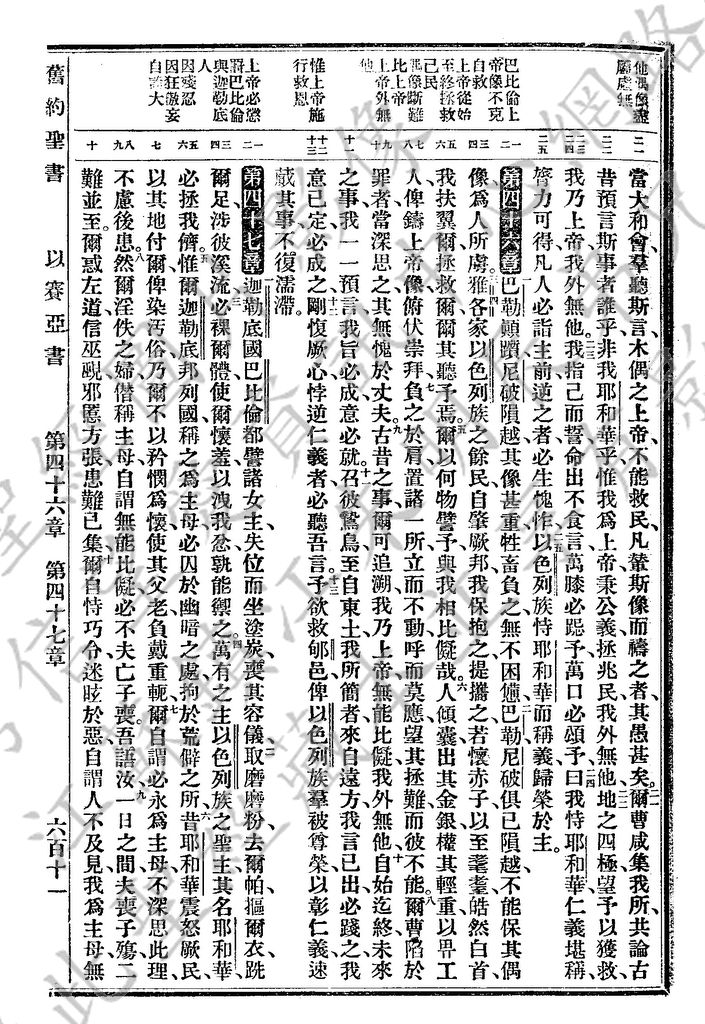 他偶像盡屬虛無
巴比倫上帝像不克自救
上帝從始至終拯救己民
偶像斷難比上帝
上帝外無他
惟上帝施行救恩
上帝必懲將巴比倫與迦勒底人
因殘忍
因狂傲妄自誇大
當大和會羣聽斯言木偶之上帝不能救民凡輦斯像而禱之者其愚甚矣爾曹咸集我所共論古
昔預言斯事者誰乎非我耶和華乎惟我爲上帝秉公義拯兆民我外無他地之四極望予以獲救
我乃上帝我外無他我指己而誓命出不食言萬膝必跽予萬口必頌予曰我恃耶和華仁義堪稱
膂力可得凡人必詣主前逆之者必生愧怍以色列族恃耶和華而稱義歸榮於主
第四十六章 巴勒傾躓尼破隕越其像甚重牲畜負之無不困憊巴勒尼破俱已隕越不能保其偶
像爲人所虜雅各家以色列族之餘民自肇厥邦我保抱之提攜之若懷赤子以至耄耋皓然白首
我扶翼爾拯救爾爾其聽予焉爾以何物譬予與我相比儗哉人傾囊出其金銀權其輕重以畀工
人俾鑄上帝像俯伏崇拜負之於肩置諸一所立而不動呼而莫應望其拯難而彼不能爾曹陷於
罪者當深思之其無愧於丈夫古昔之事爾可追溯我乃上帝無能比儗我外無他自始迄終未來
之事我一一預言我旨必成意必就召彼鷙鳥至自東土我所簡者來自遠方我言已出必踐之我
意已定必成之剛愎厥心悖逆仁義者必聽吾言予欲救郇邑俾以色列族羣被尊榮以彰仁義速
蕆其事不復濡滯
第四十七章 迦勒底國巴比倫都譬諸女主失位而坐塗炭喪其容儀取磨磨粉去爾帕摳爾衣跣
爾足涉彼溪流必裸爾體使爾懷羞以洩我忿孰能禦之萬有之主以色列族之聖主其名耶和華
必拯我儕惟爾迦勒底邦列國稱之爲主母必囚於幽暗之處拘於荒僻之所昔耶和華震怒厥民
以其地付爾俾染汚俗乃爾不以矜憫爲懷使其父老負戴重軛爾自謂必永爲主母不深思此理
不慮後患然爾淫佚之婦僭稱主母自謂無能比儗必不夫亡子喪吾語汝一日之間夫喪子殤二
難並至爾惑左道信巫覡邪慝方張患難已集爾自恃巧令迷眩於惡自謂人不及見我爲主母無
舊約聖書 以賽亞書 第四十六章 第四十七章 六百十一